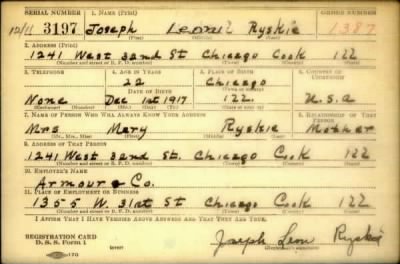 SERIAL NUMBER 1. NAME (Print) ORDER NUMBER
12/11 3197 Joseph Ryskie 1387
(First) (Middle) (Last)
2. ADDRESS (Print)
1241 West 32nd St Chicago Cook Ill
(Number and street or R. F. D. number) (Town) (County) (State)
3. TELEPHONE 4. AGE IN YEARS 5. PLACE OF BIRTH 6. COUNTRY OF CITIZENSHIP
22 Chicago
DATE OF BIRTH (Town or county)
None Dec 1st 1917 Ill. U.S.A
(Exchange) (No.) (Mo.) (Day) (Yr.) (State or country)
7. NAME OF PERSON WHO WILL ALWAYS KNOW YOUR ADDRESS 8. RELATIONSHIP OF THAT PERSON
Mrs Mary Ryskie Mother
(Mr., Mrs., Miss) (First) (Middle) (Last)
9. ADDRESS OF THAT PERSON
1241 West 32nd St. Chicago Cook Ill
(Number and street or R. F. D. number) (Town) (County) (State)
10. EMPLOYER'S NAME
Armour & Co.
11. PLACE OF EMPLOYMENT OR BUSINESS
1355 W. 31st St Chicago Cook Ill
(Number and street or R. F. D. number) (Town) (County) (State)
I AFFIRM THAT I HAVE VERIFIED ABOVE ANSWERS AND THAT THEY ARE TRUE.
REGISTRATION CARD
D. S. S. Form 1 (over) Joseph Leon Ryskie
(Registrant's signature)